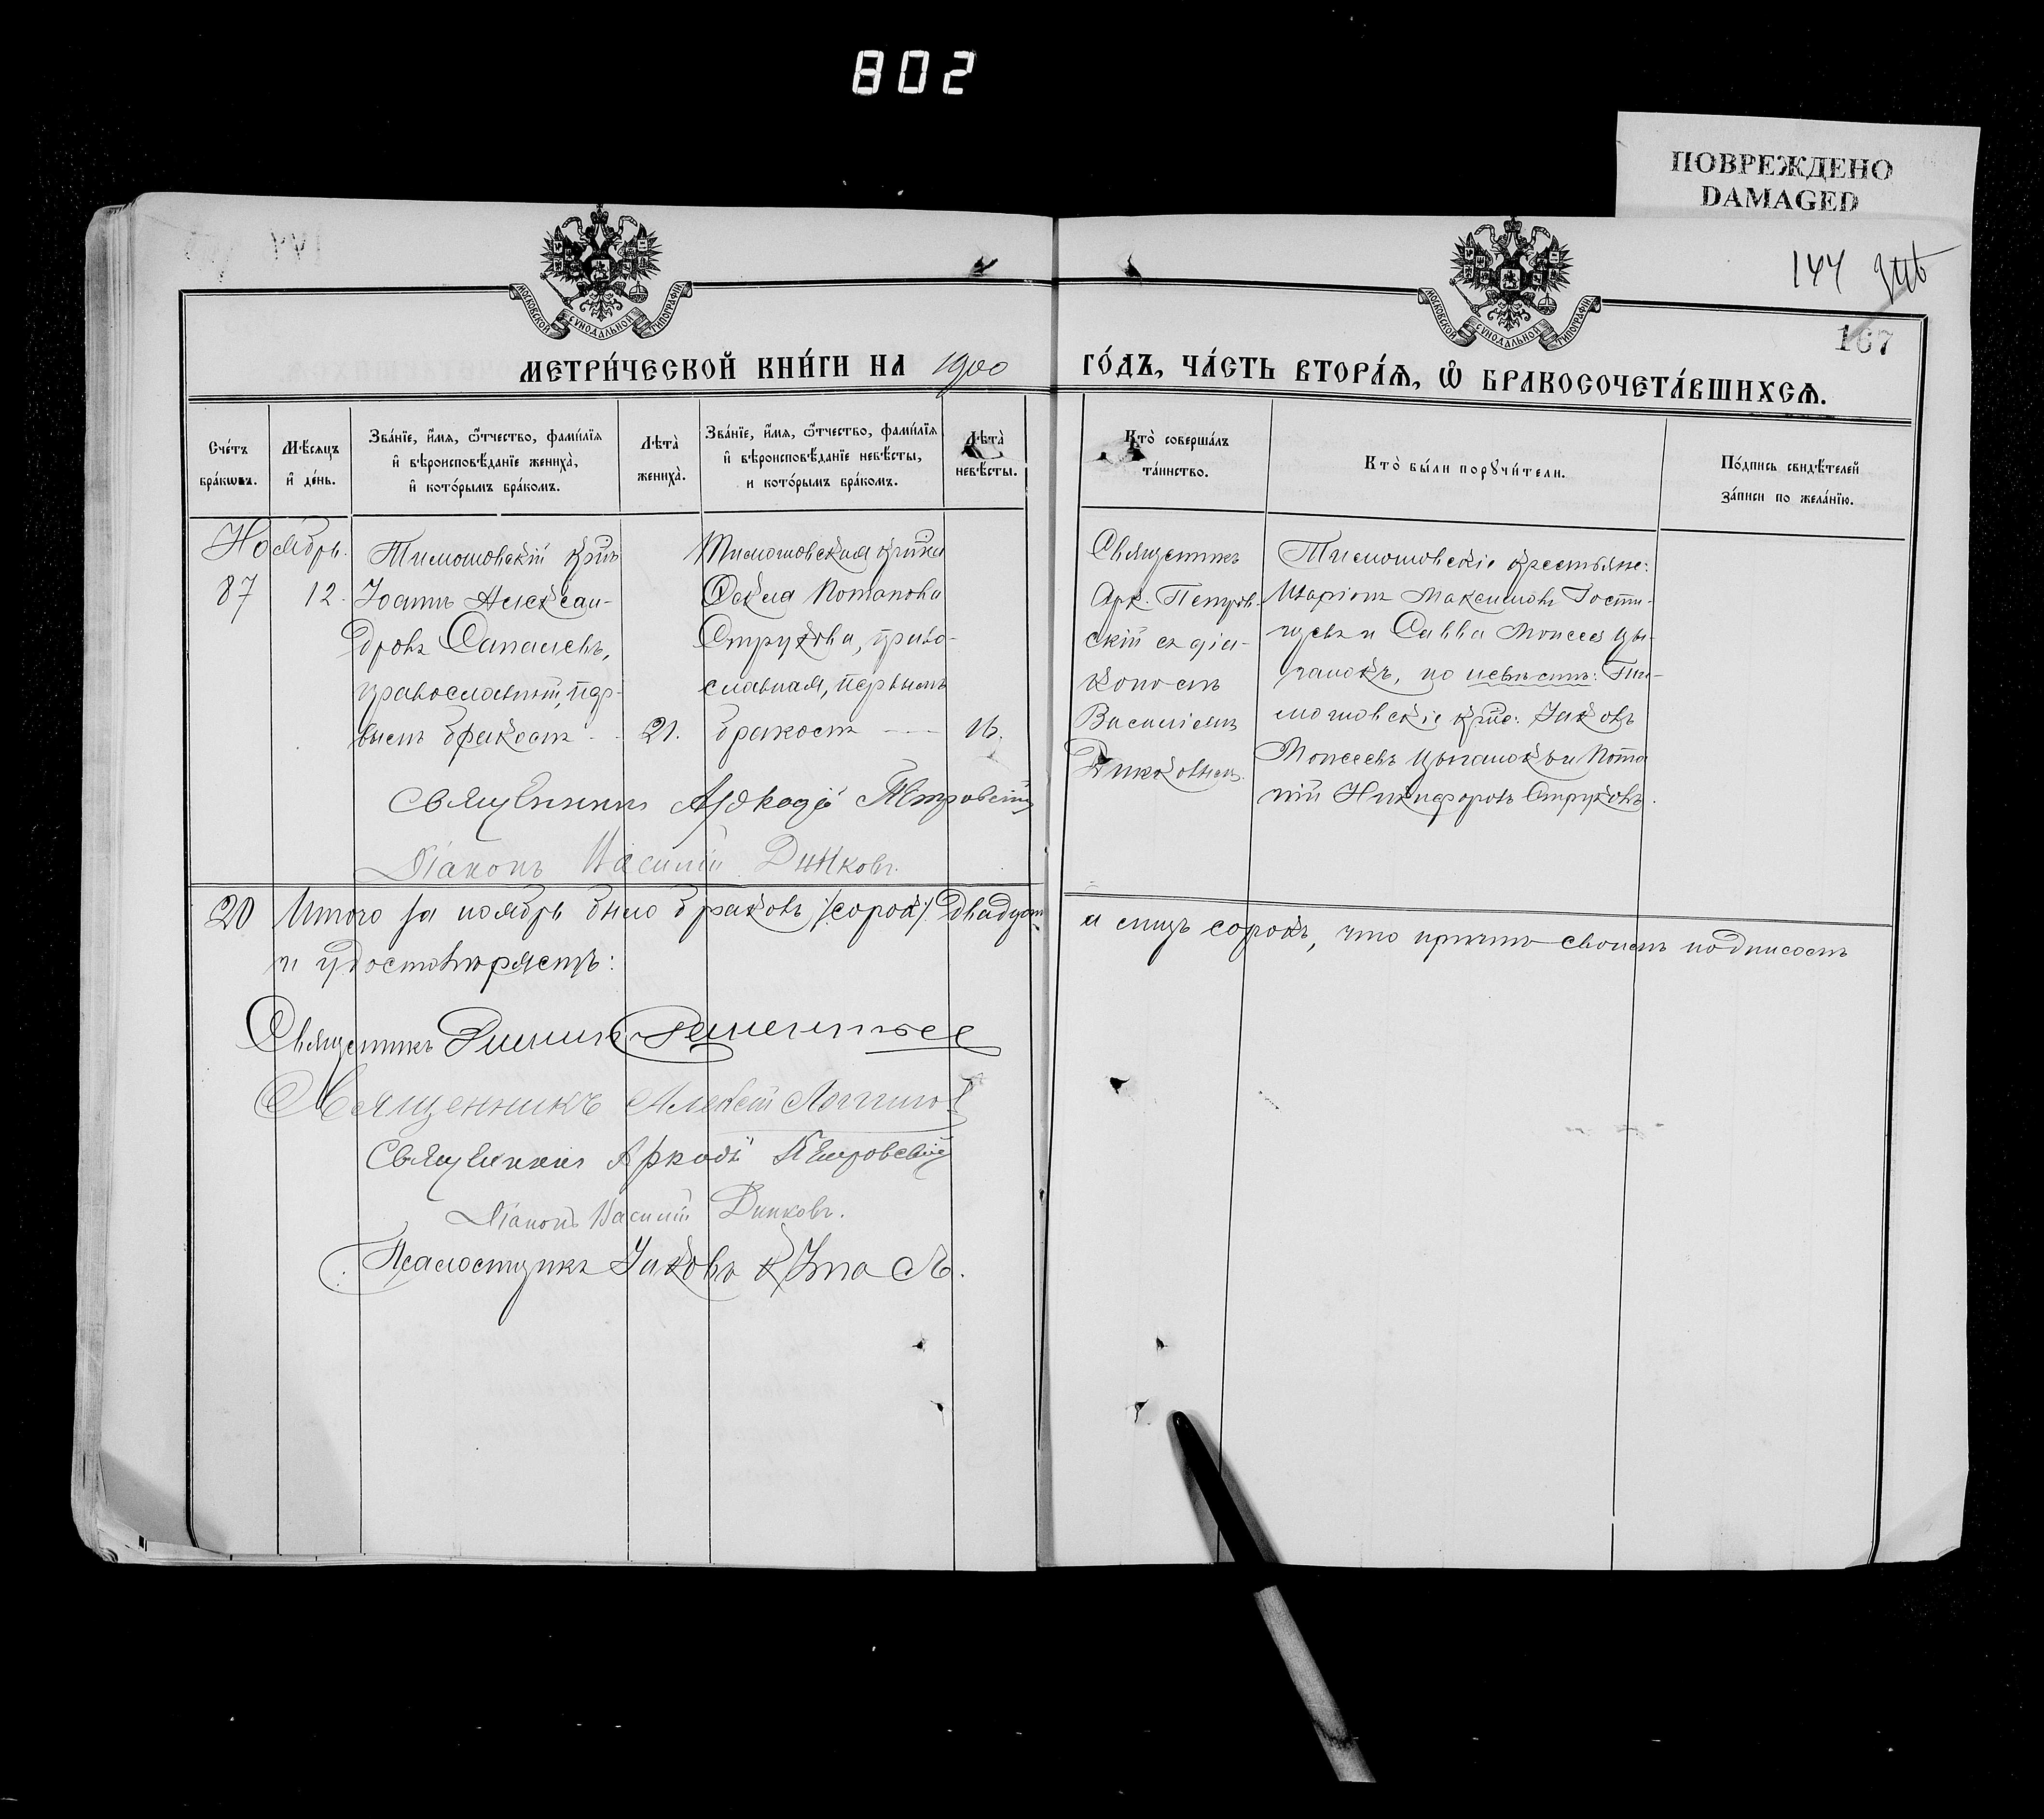 802
ПОВРЕЖДЕНО
DAMAGED
144
167
МОСКОВСКОЙ СѴНОДАЛЬНОЙ ТИПОГРАФІИ
МОСКОВСКОЙ СѴНОДАЛЬНОЙ ТИПОГРАФІИ
МЕТРИ́ЧЕСКОЙ КНИ́ГИ НА 1900 ГО́ДЪ, ЧА́СТЬ ВТОРА́Ѧ, Ѡ҆ БРАКОСОЧЕТА́ВШИХСѦ.
Сче́тъ бра́кѡвъ.
Мѣ́сѧцъ и҆ де́нь.
Зва́нїе, и҆́мѧ, ѻ҆́тчество, фами́лїѧ и҆ вѣроисповѣ́данїе жениха̀, и҆ кото́рымъ бра́комъ.
Лѣта̀ жениха̀.
Зва́нїе, и҆́мѧ, ѻ҆́тчество, фами́лїѧ и҆ вѣроисповѣ́данїе невѣ́сты, и кото́рымъ бра́комъ.
Лѣта̀ невѣ́сты.
Кто̀ соверша́лъ та́инство.
Кто̀ бы́ли порꙋчи́тели.
По́дпись свидѣ́телей за́писи по жела́нїю.
Ноябрь.
87
12.
Тимошовскій крнъ
Іоаннъ Алексан-
дровъ Сапачевъ,
православный, пер-
вымъ бракомъ
21.
Тимошовская крнка
Ѳекла Потапова
Струкова, право-
славная, первымъ
бракомъ
16.
Священникъ
Арк. Петров-
скій съ діа-
кономъ
Василіемъ
Диковымъ.
Тимошовскіе крестьяне:
Иларіонъ Максимовъ Гости-
щевъ и Савва Моисеев Цы-
ганокъ, по невѣстѣ: Ти-
мошовскіе крне: Іаковъ
Моисеевъ Цыганокъ и Пота
пій Никифоровъ Струковъ.
Священникъ Аркадій Петровскій
Діаконъ Василій Диковъ.
20 Итого за ноябрь было браковъ /сорокъ/. двадцать
и лицъ сорокъ, что причтъ своимъ подписомъ
и удостовѣряетъ:
Священникъ
Священникъ Алексій
Священникъ Аркадій Петровскій
Діаконъ Василій Диковъ.
Псаломщикъ Іаковъ